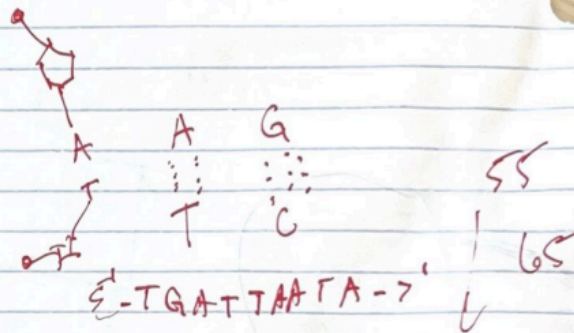 A A G
T T C
55
65
5'-TGATTAATA->'